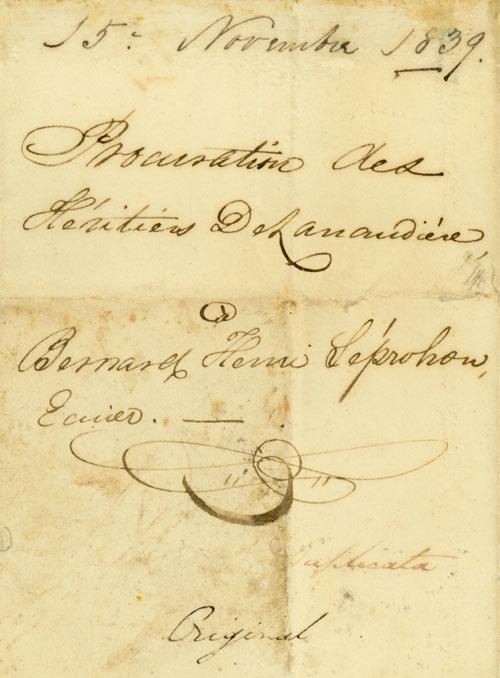 15e Novembre 1839.
Procuration des
Héritiers DeLanaudière
à
Bernard Henri Léprohon,
Ecuier. —
Duplicata
Original